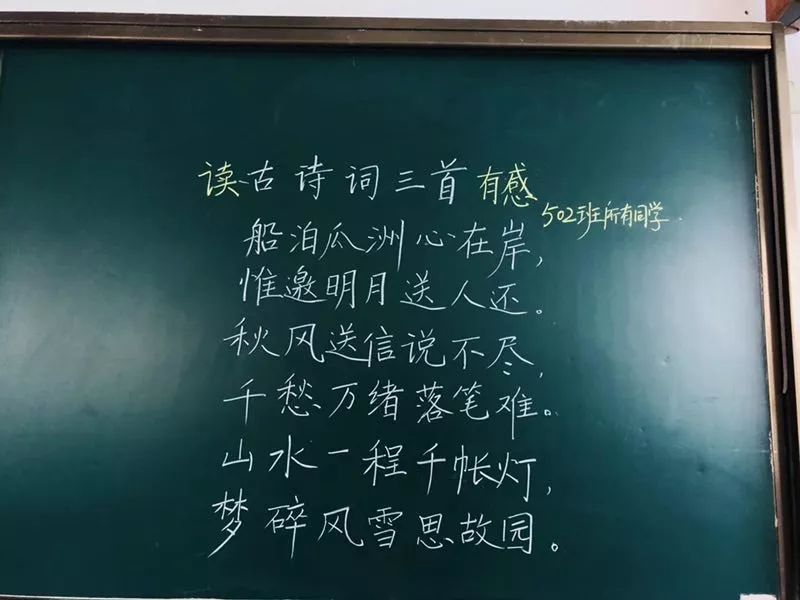 读古诗词三首有感
502班所有同学.
船泊瓜洲心在岸,
惟邀明月送人还。
秋风送信说不尽,
千愁万绪落笔难。
山水一程千帐灯,
梦碎风雪思故园。